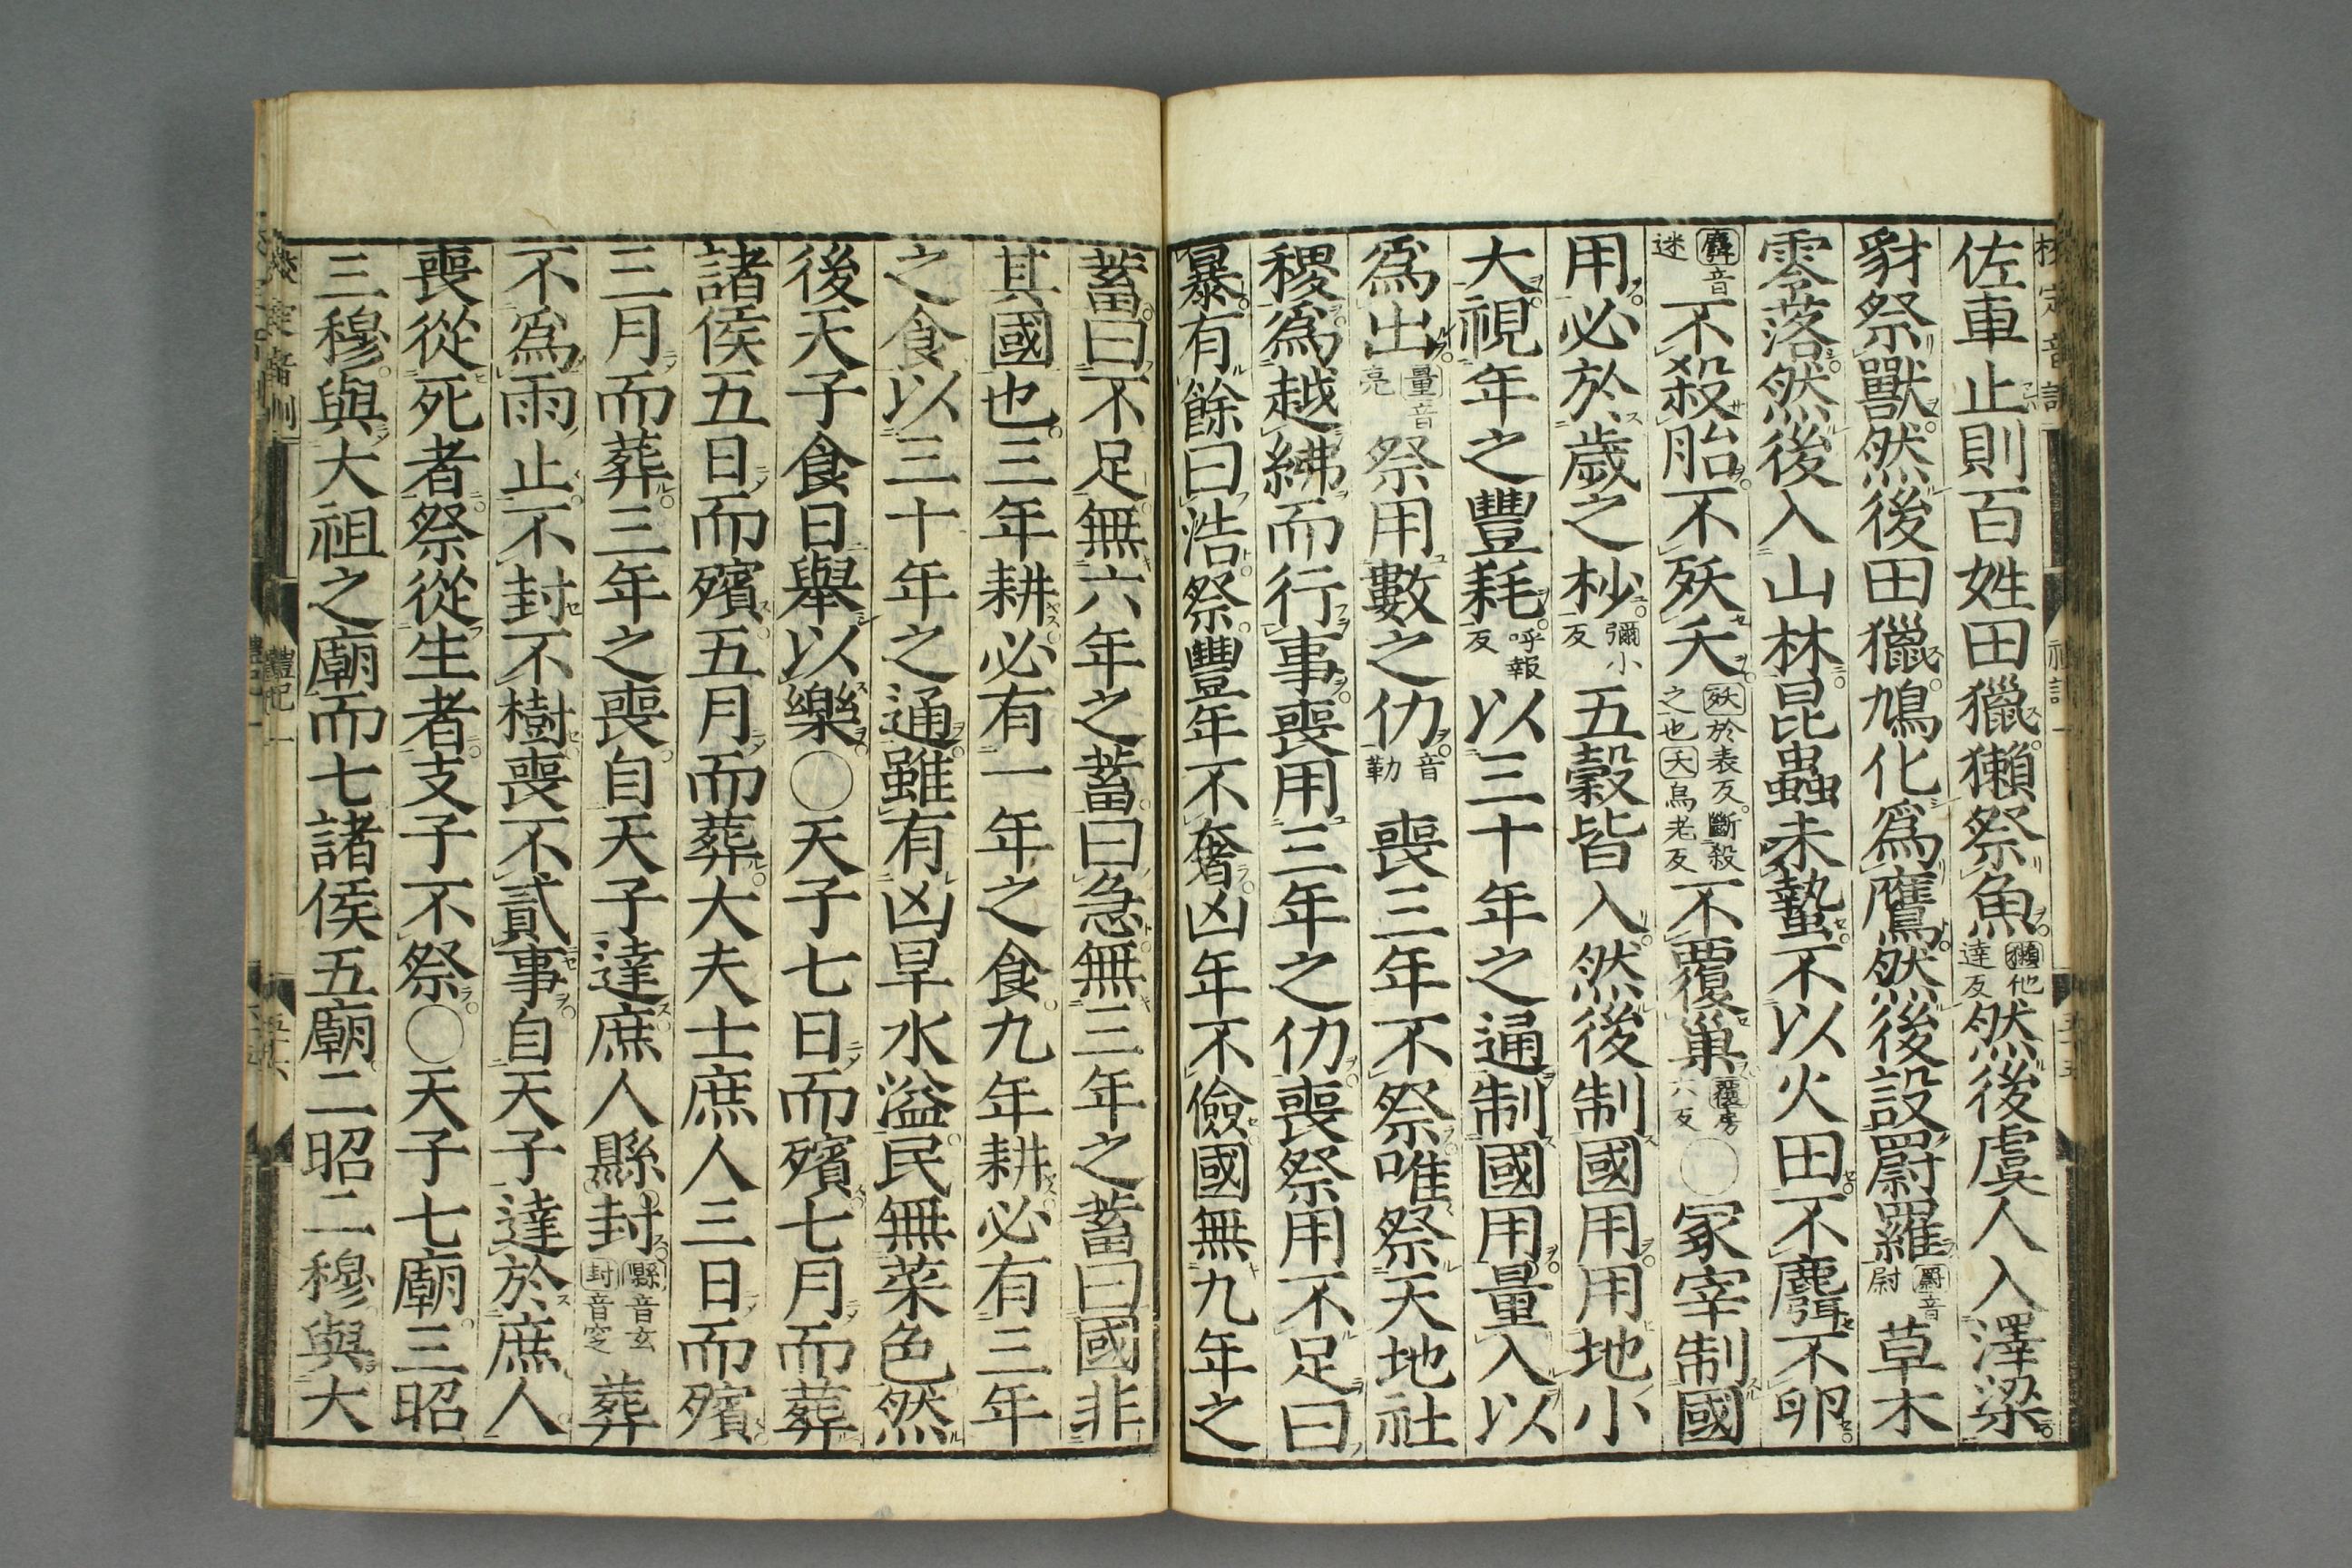 佐車止則百姓田獵獺祭魚獺他達反然後虞人入澤梁
豺祭獸然後田獵鳩化爲鷹然後設罻羅罻音尉草木
零落然後入山林昆蟲未蟄不以火田不麛不卵
麛音迷不殺胎不殀夭殀於表反斷殺之也夭烏老反不覆巢覆房六反〇冢宰制國
用必於歲之杪彌小反五穀皆入然後制國用用地小
大視年之豐耗呼報反以三十年之通制國用量入以
爲出量音亮祭用數之仂音勒喪三年不祭唯祭天地社
稷爲越紼而行事喪用三年之仂喪祭用不足曰
暴有餘曰浩祭豐年不奢凶年不儉國無九年之
蓄曰不足無六年之蓄曰急無三年之蓄曰國非
其國也三年耕必有一年之食九年耕必有三年
之食以三十年之通雖有凶旱水溢民無菜色然
後天子食日舉以樂〇天子七日而殯七月而葬
諸侯五日而殯五月而葬大夫士庶人三日而殯
三月而葬三年之喪自天子達庶人縣封縣音玄封音窆葬
不爲雨止不封不樹喪不貳事自天子達於庶人
喪從死者祭從生者支子不祭〇天子七廟三昭
三穆與大祖之廟而七諸侯五廟二昭二穆與大
禮記一